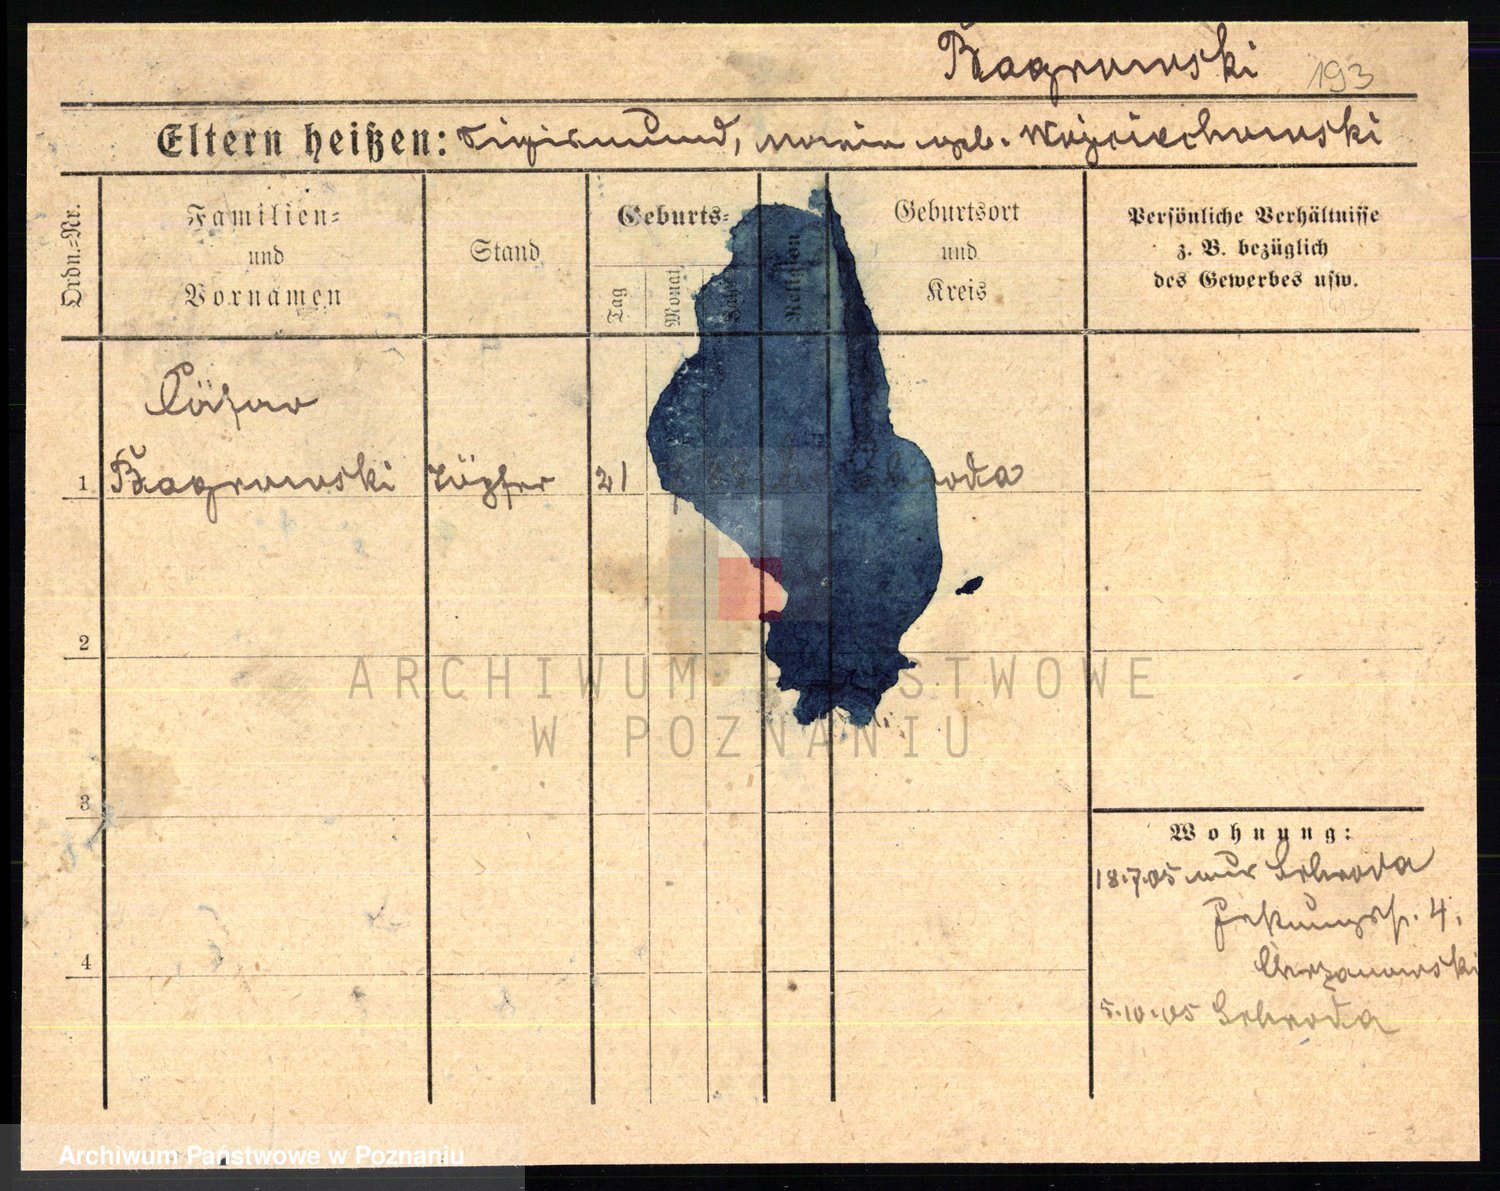 Bagrowski 193
Eltern heißen: Sigismund, Maria geb. Wojciechowski
Ordn.=Nr.
Familien=
und
Vornamen
Stand
Geburts=
Tag
Monat
Jahr
Religion
Geburtsort
und
Kreis
Persönliche Verhältnisse
z. B. bezüglich
des Gewerbes usw.
Cäsar
1 Bagrowski Töpfer 21 Schroda
2
3
4
Wohnung:
18.7.05 Schroda
4.
Chrzanowski
5.10.05 Schroda
ARCHIWUM PAŃSTWOWE
W POZNANIU
Archiwum Państwowe w Poznaniu